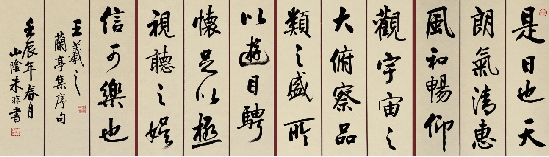 是日也天
朗氣清惠
風和暢仰
觀宇宙之
大俯察品
類之盛所
以遊目騁
懷足以極
視聽之娛
信可樂也
王羲之
蘭亭集序句
壬辰年春月
山陰朱非書